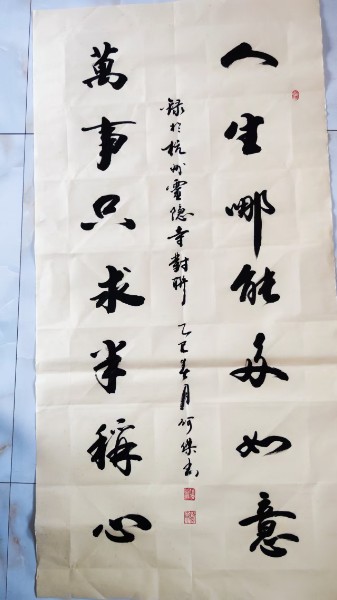 人生哪能多如意
萬事只求半稱心
録於杭州靈隐寺對聯 乙巳春月 書